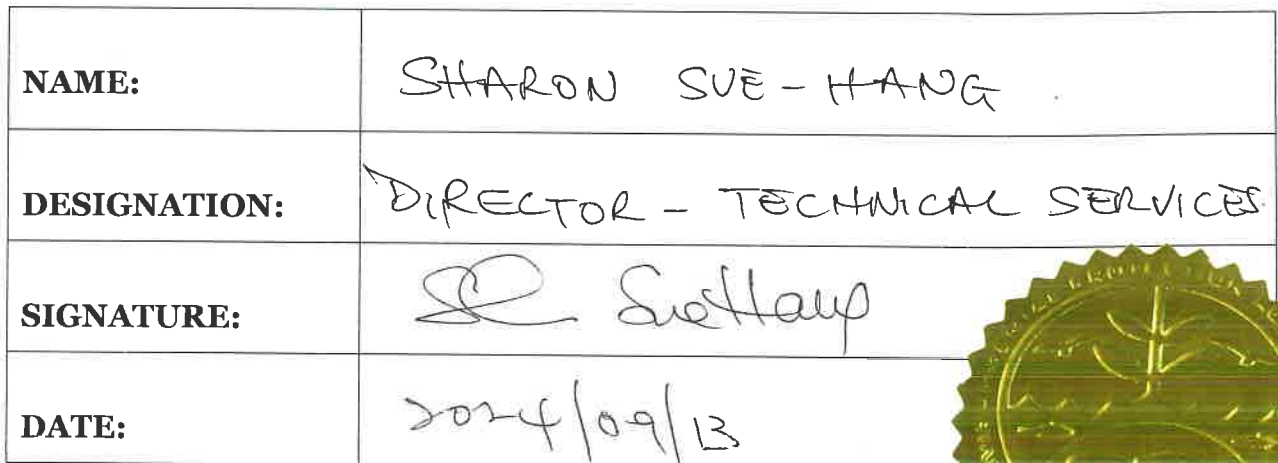 NAME: SHARON SUE-HANG
DESIGNATION: DIRECTOR - TECHNICAL SERVICES
SIGNATURE: S SueHang
DATE: 2024/09/13
PROTECTION